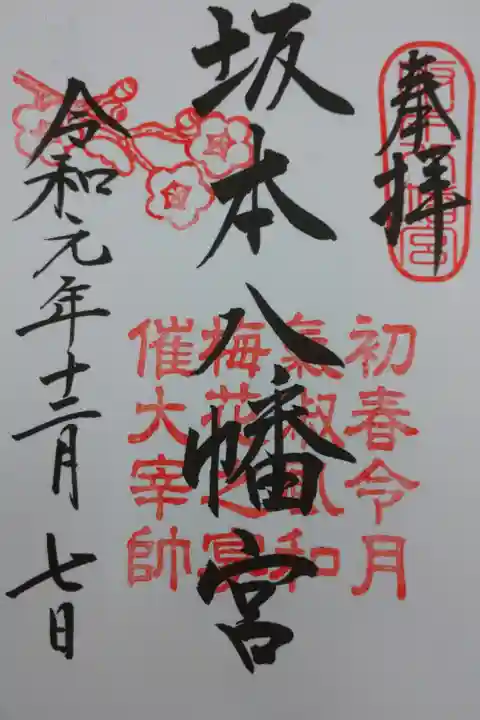 奉拝
坂本八幡宮
初春令月
氣淑風和
梅花之宴
催大宰帥
令和元年十二月七日